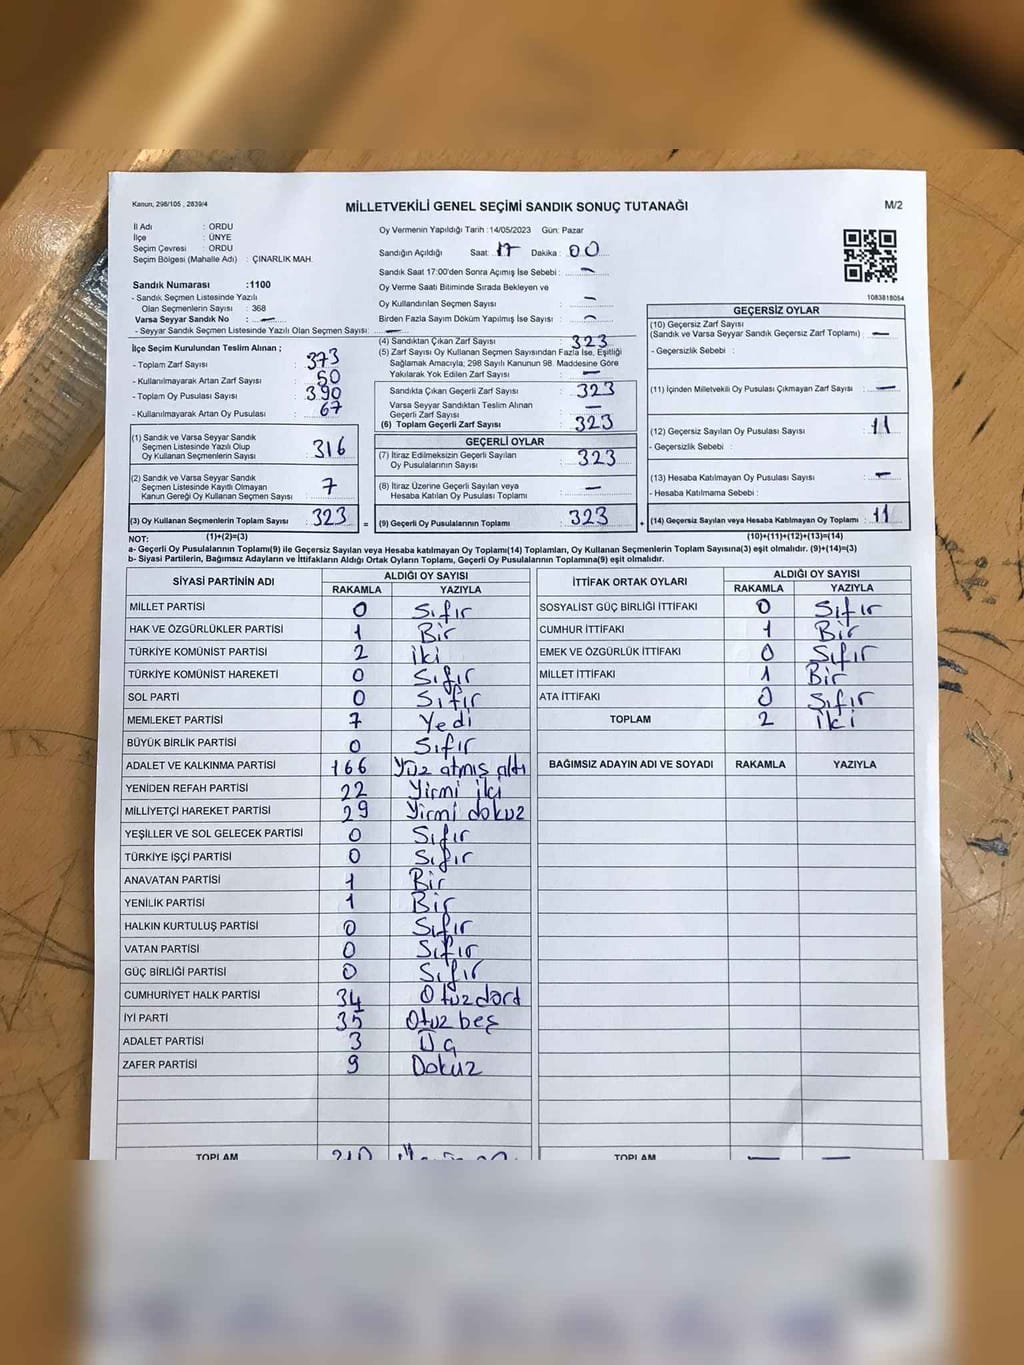 Kanun, 298/105 , 2839/4
MİLLETVEKİLİ GENEL SEÇİMİ SANDIK SONUÇ TUTANAĞI
M/2
İl Adı : ORDU
İlçe : ÜNYE
Seçim Çevresi : ORDU
Seçim Bölgesi (Mahalle Adı) : ÇINARLIK MAH.
Sandık Numarası :1100
- Sandık Seçmen Listesinde Yazılı
Olan Seçmenlerin Sayısı : 368
Varsa Seyyar Sandık No : —
- Seyyar Sandık Seçmen Listesinde Yazılı Olan Seçmen Sayısı: —
İlçe Seçim Kurulundan Teslim Alınan ;
- Toplam Zarf Sayısı : 373
- Kullanılmayarak Artan Zarf Sayısı : 50
- Toplam Oy Pusulası Sayısı : 390
- Kullanılmayarak Artan Oy Pusulası : 67
(1) Sandık ve Varsa Seyyar Sandık
Seçmen Listesinde Yazılı Olup
Oy Kullanan Seçmenlerin Sayısı : 316
(2) Sandık ve Varsa Seyyar Sandık
Seçmen Listesinde Kayıtlı Olmayan
Kanun Gereği Oy Kullanan Seçmen Sayısı : 7
(3) Oy Kullanan Seçmenlerin Toplam Sayısı : 323 =
Oy Vermenin Yapıldığı Tarih :14/05/2023 Gün: Pazar
Sandığın Açıldığı Saat: 17 Dakika : 00
Sandık Saat 17:00'den Sonra Açılmış İse Sebebi : —
Oy Verme Saati Bitiminde Sırada Bekleyen ve
Oy Kullandırılan Seçmen Sayısı : —
Birden Fazla Sayım Döküm Yapılmış İse Sayısı : —
(4) Sandıktan Çıkan Zarf Sayısı : 323
(5) Zarf Sayısı Oy Kullanan Seçmen Sayısından Fazla İse, Eşitliği
Sağlamak Amacıyla, 298 Sayılı Kanunun 98. Maddesine Göre
Yakılarak Yok Edilen Zarf Sayısı : —
Sandıkta Çıkan Geçerli Zarf Sayısı : 323
Varsa Seyyar Sandıktan Teslim Alınan
Geçerli Zarf Sayısı : —
(6) Toplam Geçerli Zarf Sayısı : 323
GEÇERLİ OYLAR
(7) İtiraz Edilmeksizin Geçerli Sayılan
Oy Pusulalarının Sayısı : 323
(8) İtiraz Üzerine Geçerli Sayılan veya
Hesaba Katılan Oy Pusulası Toplamı : —
(9) Geçerli Oy Pusulalarının Toplamı : 323 +
1083818054
GEÇERSİZ OYLAR
(10) Geçersiz Zarf Sayısı
(Sandık ve Varsa Seyyar Sandık Geçersiz Zarf Toplamı) : —
- Geçersizlik Sebebi :
(11) İçinden Milletvekili Oy Pusulası Çıkmayan Zarf Sayısı : —
(12) Geçersiz Sayılan Oy Pusulası Sayısı : 11
- Geçersizlik Sebebi :
(13) Hesaba Katılmayan Oy Pusulası Sayısı : —
- Hesaba Katılmama Sebebi :
(14) Geçersiz Sayılan veya Hesaba Katılmayan Oy Toplamı : 11
NOT: (1)+(2)=(3) (10)+(11)+(12)+(13)=(14)
a- Geçerli Oy Pusulalarının Toplamı(9) ile Geçersiz Sayılan veya Hesaba katılmayan Oy Toplamı(14) Toplamları, Oy Kullanan Seçmenlerin Toplam Sayısına(3) eşit olmalıdır. (9)+(14)=(3)
b- Siyasi Partilerin, Bağımsız Adayların ve İttifakların Aldığı Ortak Oyların Toplamı, Geçerli Oy Pusulalarının Toplamına(9) eşit olmalıdır.
SİYASİ PARTİNİN ADI ALDIĞI OY SAYISI
RAKAMLA YAZIYLA
MİLLET PARTİSİ 0 Sıfır
HAK VE ÖZGÜRLÜKLER PARTİSİ 1 Bir
TÜRKİYE KOMÜNİST PARTİSİ 2 iki
TÜRKİYE KOMÜNİST HAREKETİ 0 Sıfır
SOL PARTİ 0 Sıfır
MEMLEKET PARTİSİ 7 Yedi
BÜYÜK BİRLİK PARTİSİ 0 Sıfır
ADALET VE KALKINMA PARTİSİ 166 Yüz atmış altı
YENİDEN REFAH PARTİSİ 22 Yirmi iki
MİLLİYETÇİ HAREKET PARTİSİ 29 Yirmi dokuz
YEŞİLLER VE SOL GELECEK PARTİSİ 0 Sıfır
TÜRKİYE İŞÇİ PARTİSİ 0 Sıfır
ANAVATAN PARTİSİ 1 Bir
YENİLİK PARTİSİ 1 Bir
HALKIN KURTULUŞ PARTİSİ 0 Sıfır
VATAN PARTİSİ 0 Sıfır
GÜÇ BİRLİĞİ PARTİSİ 0 Sıfır
CUMHURİYET HALK PARTİSİ 34 Otuzdört
İYİ PARTİ 35 Otuz beş
ADALET PARTİSİ 3 Üç
ZAFER PARTİSİ 9 Dokuz
TOPLAM
İTTİFAK ORTAK OYLARI ALDIĞI OY SAYISI
RAKAMLA YAZIYLA
SOSYALİST GÜÇ BİRLİĞİ İTTİFAKI 0 Sıfır
CUMHUR İTTİFAKI 1 Bir
EMEK VE ÖZGÜRLÜK İTTİFAKI 0 Sıfır
MİLLET İTTİFAKI 1 Bir
ATA İTTİFAKI 0 Sıfır
TOPLAM 2 iki
BAĞIMSIZ ADAYIN ADI VE SOYADI RAKAMLA YAZIYLA
TOPLAM — —